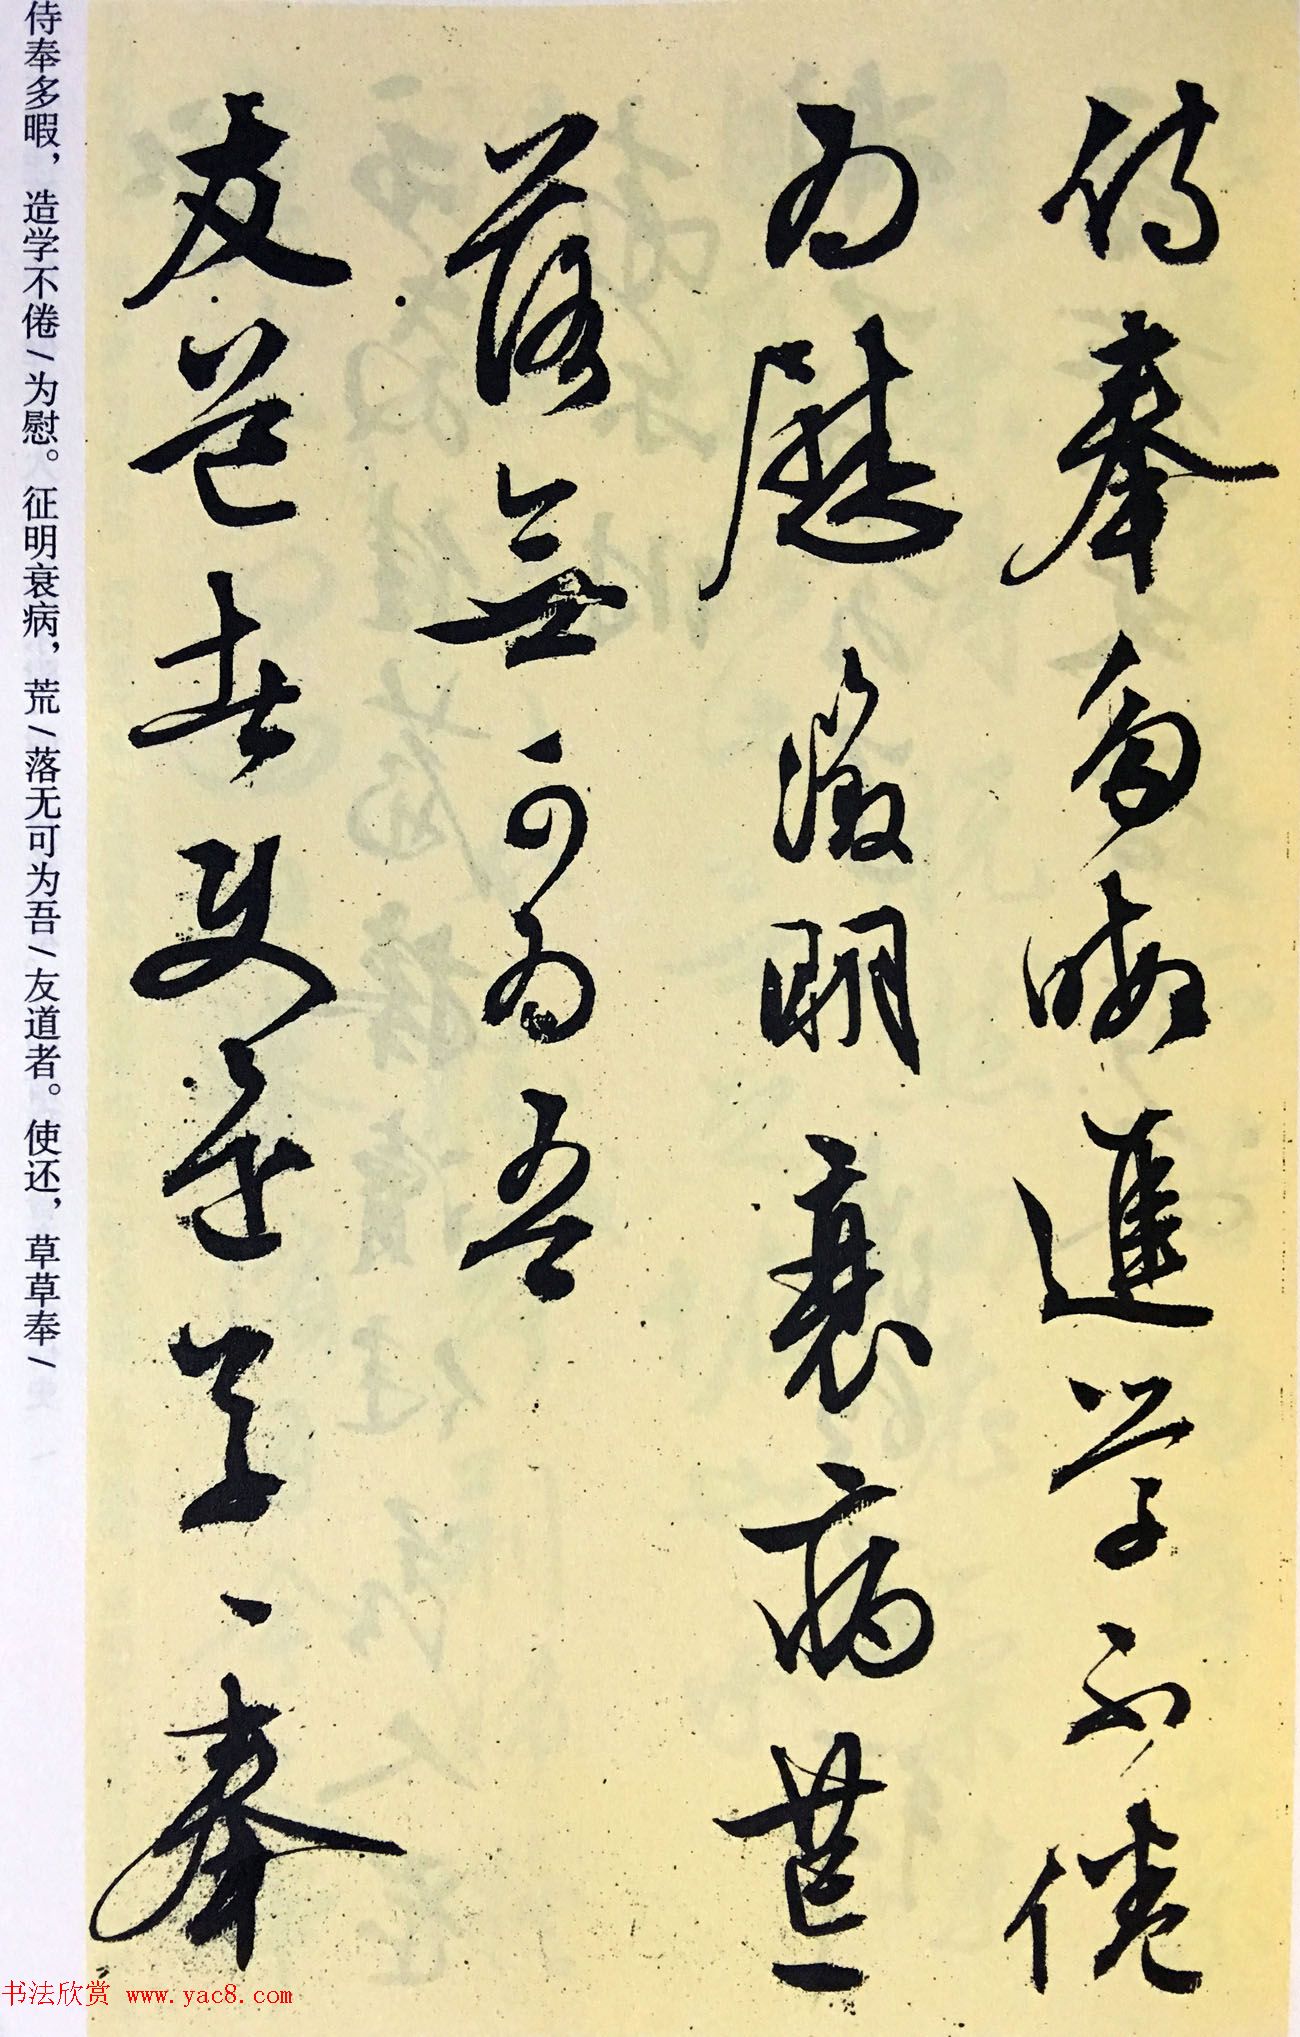 侍奉多暇進学不倦
为慰徵明衰病荒
落無可为吾
友道者使还草〻奉
侍奉多暇，造学不倦/为慰。征明衰病，荒/落无可为吾/友道者。使还，草草奉/
书法欣赏 www.yac8.com